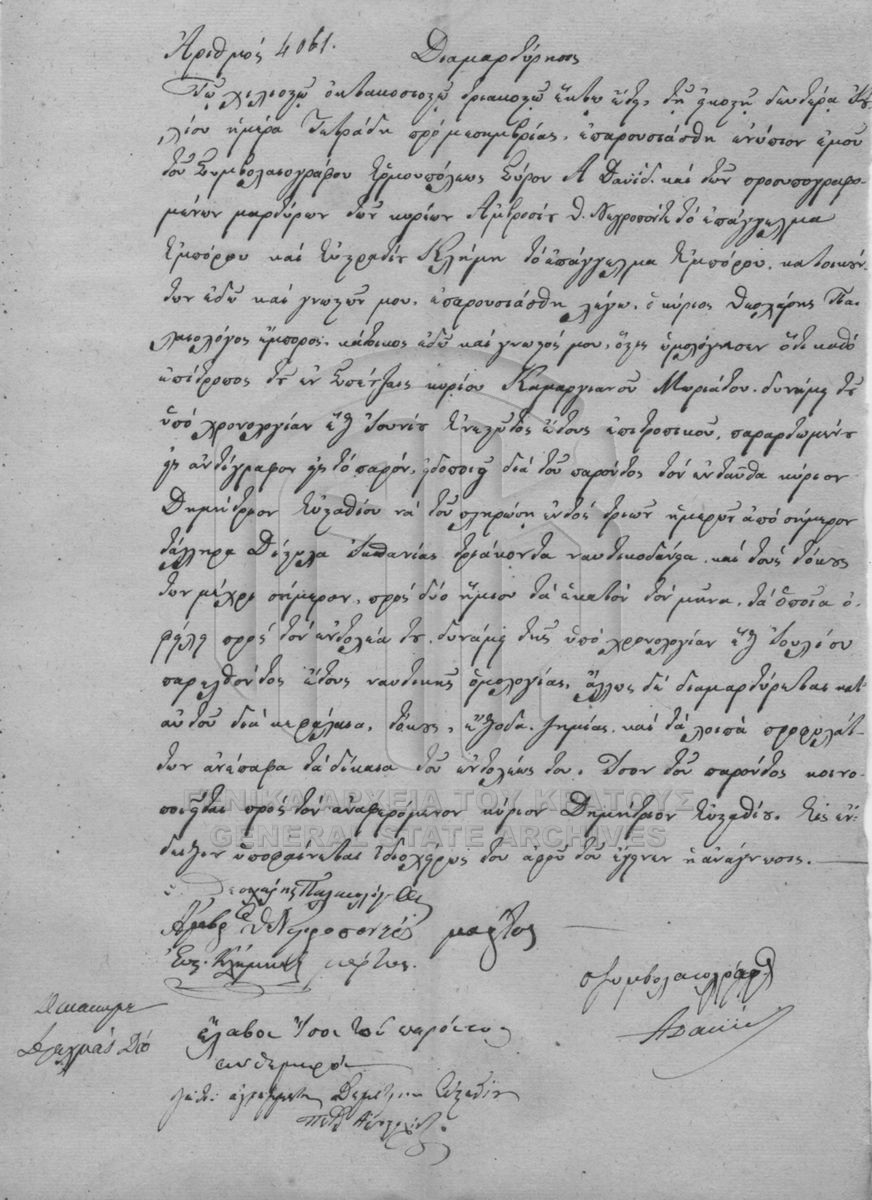 Ἀριθμός 4061. Διαμαρτύρησις
Τῷ χιλιοςῷ ὀκτακοσιοςῷ τριακοςῷ ἕκτῳ ἔτει, τῇ εἰκοςῇ δευτέρᾳ Ἰου
λίου ἡμέρᾳ Τετράδη πρό μεσημβρίας, ἐπαρουσιάσθη ἐνώπιον ἐμοῦ
τοῦ Συμβολαιογράφου Ἑρμουπόλεως Σύρου Α Δαυίδ. καί τῶν προσυπογραφο-
μένων μαρτύρων τῶν κυρίων Ἀμβροσίου Θ. Νεγροπόντε τό ἐπάγγελμα
Ἐμπόρου καί Εὐςρατίου Κλήμη τό ἐπάγγελμα Ἐμπόρου, κατοικούν-
των ἐδῶ καί γνωςῶν μου, ἐπαρουσιάσθη λέγω, ὁ κύριος Θεοχάρης Πα-
λαιολόγος ἔμπορος, κάτοικος ἐδῶ καί γνωςός μου, ὅςις ὡμολόγησεν ὅτι καθό
ἐπίτροπος τοῦ ἐν Σπέτζαις κυρίου Μυριάτου. δυνάμει τοῦ
ὑπό χρονολογίαν Ἰουνίου ἐνεςῶτος ἔτους ἐπιτροπικοῦ,
εἰς ἀντίγραφον εἰς τό παρόν, εἰδοποιεῖ διά τοῦ παρόντος τόν ἐνταῦθα κύριον
Δημήτριον Εὐςαθίου νά τοῦ πληρώσῃ ἐντός τριῶν ἡμερῶν ἀπό σήμερον
τάλληρα Δίςυλα Ἱσπανίας τριάκοντα ναυτικοδάνεια, καί τούς τόκους
των μέχρι σήμερον, πρός δύο ἥμισυ τά ἑκατόν τόν μῆνα, τά ὁποῖα ὀ-
φείλει πρός τόν ἐντολέα του, δυνάμει τῆς ὑπό χρονολογίαν Ἰουλίου
παρελθόντος ἔτους ναυτικῆς ὁμολογίας, ἄλλως δέ διαμαρτύρεται κατ
αὐτοῦ διά κεφάλαια, τόκους, ἔξοδα, ζημίας, καί τά λοιπά προφυλάτ-
των ἀνέπαφα τά δίκαια τοῦ ἐντολέως του. Ἴσον τοῦ παρόντος κοινο-
ποιεῖται πρός τόν ἀναφερόμενον κύριον Δημήτριον Εὐςαθίου. Εἰς ἔν-
δειξιν ὑποφαίνεται ἰδιοχείρως τοῦ ἀφ' οὗ τοῦ ἔγεινεν ἡ ἀνάγνωσις.
ΓΕΝΙΚΑ ΑΡΧΕΙΑ ΤΟΥ ΚΡΑΤΟΥΣ
GENERAL STATE ARCHIVES
Θεοχάρης Παλαιολόγος
Ἀμβρ Θ Νεγροπόντες μάρτυς
Εὐς. Κλήμης μάρτυς.
ὁ συμβολαιογράφος
ΑΔαυίδ
Δικαίωμα
Δραχμάς Δύο
ἔλαβον ἴσον τοῦ παρόντος
αὐθημερόν
Δημήτριον Εὐςαθίου